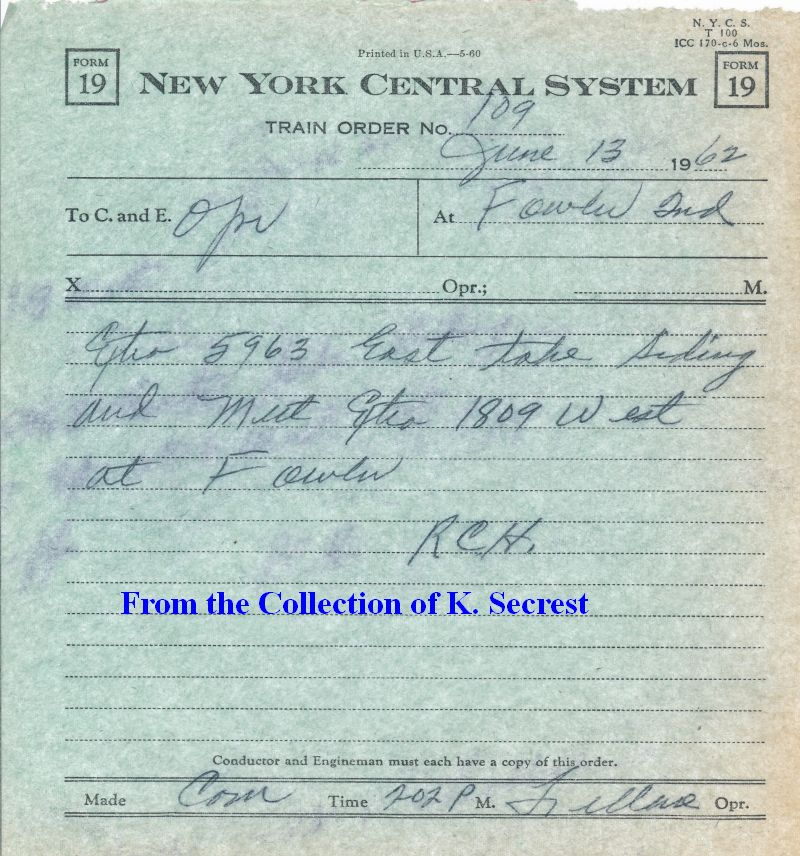 N. Y. C. S.
T 100
ICC 170-c-6 Mos.
Printed in U.S.A.—5-60
FORM 19
NEW YORK CENTRAL SYSTEM
FORM 19
TRAIN ORDER No. 109
June 13 1962
To C. and E. Opr
At Fowler Ind
X Opr.; M.
Extra 5963 East take Siding
and Meet Extra 1809 West
at Fowler
RCH.
From the Collection of K. Secrest
Conductor and Engineman must each have a copy of this order.
Made Com Time 202 P M. Opr.